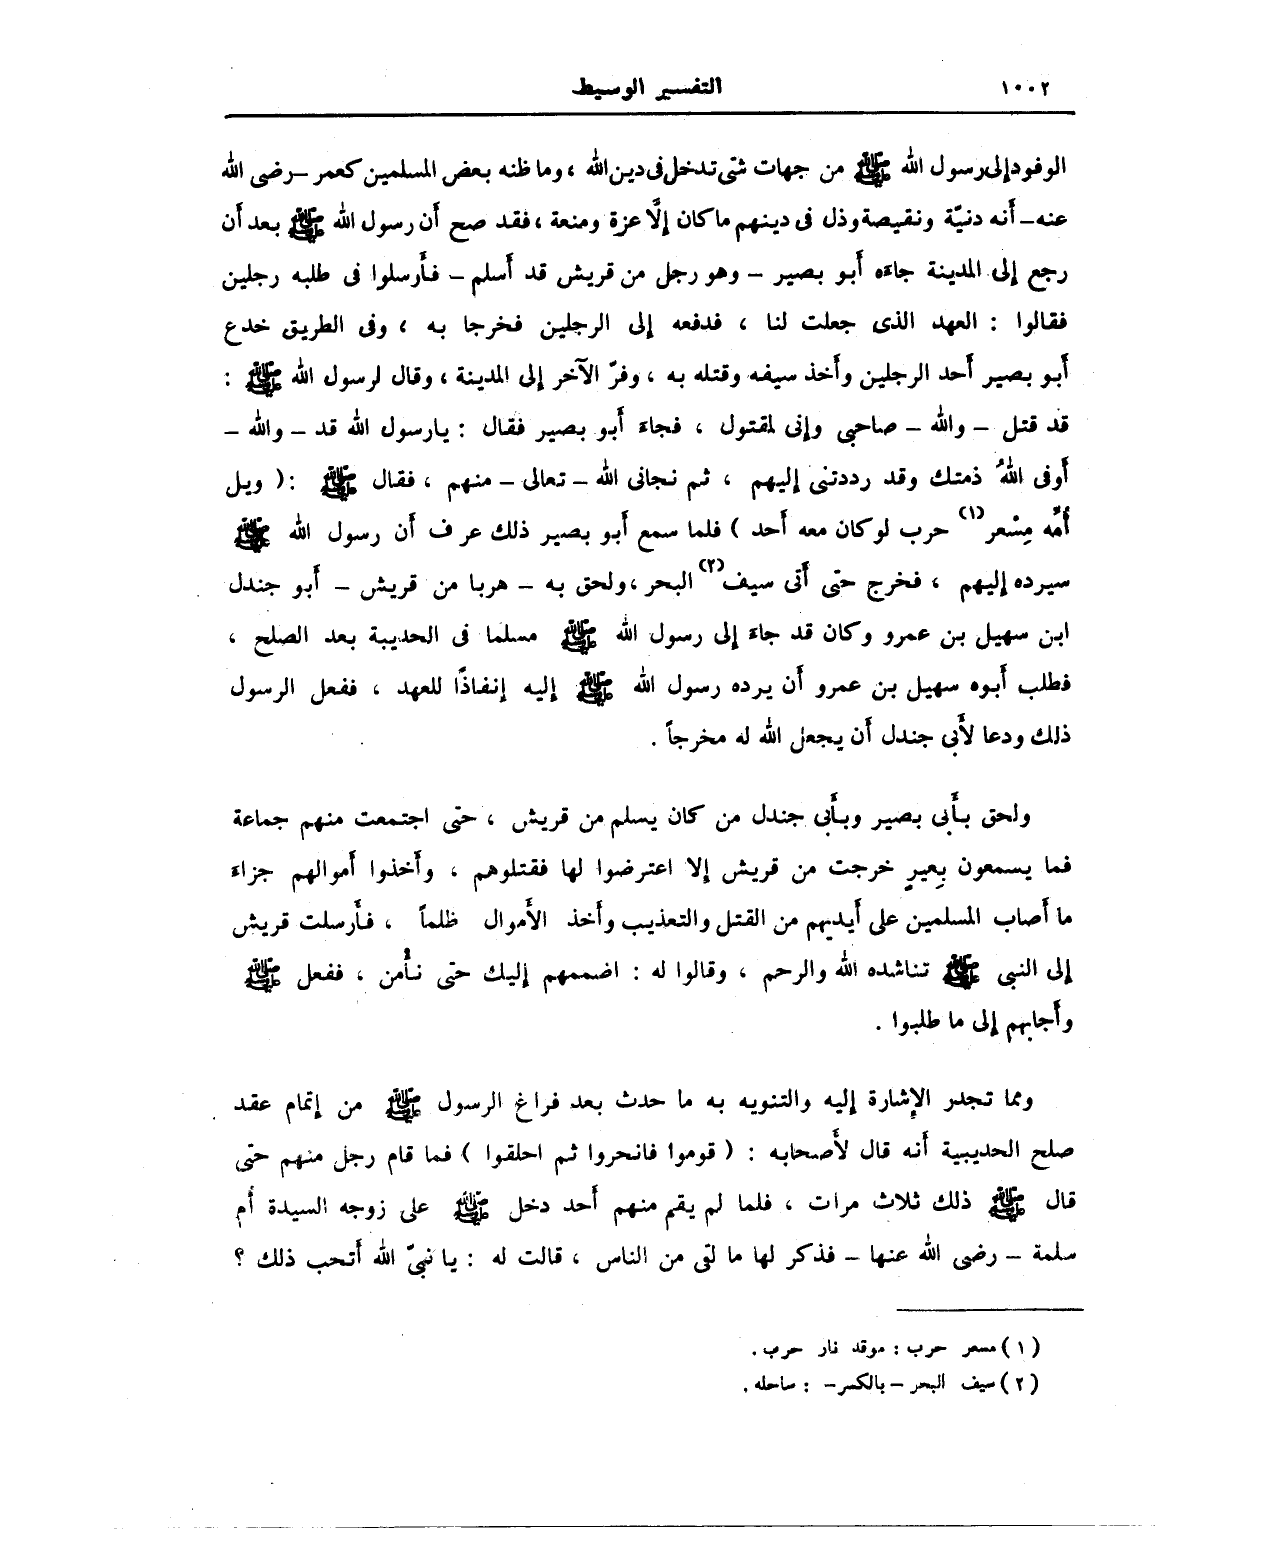 ١٠٠٢ التفسير الوسيط
الوفود إلى رسول الله ﷺ من جهات شتى تدخل فى دين الله ، وما ظنه بعض المسلمين كعمر – رضى الله
عنه – أنه دنيّة ونقيصة وذل فى دينهم ما كان إلَّا عزة ومنعة ، فقد صح أن رسول الله ﷺ بعد أن
رجع إلى المدينة جاءه أبو بصير – وهو رجل من قريش قد أسلم – فأرسلوا فى طلبه رجلين
فقالوا : العهد الذى جعلت لنا ، فدفعه إلى الرجلين فخرجا به ، وفى الطريق خدع
أبو بصير أحد الرجلين وأخذ سيفه وقتله به ، وفرّ الآخر إلى المدينة ، وقال لرسول الله ﷺ :
قد قتل – والله – صاحبى وإنى لمقتول ، فجاء أبو بصير فقال : يارسول الله قد – والله –
أوفى اللهُ ذمتك وقد رددتنى إليهم ، ثم نجانى الله – تعالى – منهم ، فقال ﷺ : ( ويل
أمِّه مِسْعر (١) حرب لو كان معه أحد ) فلما سمع أبو بصير ذلك عرف أن رسول الله ﷺ
سيرده إليهم ، فخرج حتى أتى سيف (٢) البحر ، ولحق به – هربا من قريش – أبو جندل
ابن سهيل بن عمرو وكان قد جاء إلى رسول الله ﷺ مسلما فى الحديبة بعد الصلح ،
فطلب أبوه سهيل بن عمرو أن يرده رسول الله ﷺ إليه إنفاذًا للعهد ، ففعل الرسول
ذلك ودعا لأبى جندل أن يجعل الله له مخرجاً .
ولحق بأبى بصير وبأبى جندل من كان يسلم من قريش ، حتى اجتمعت منهم جماعة
فما يسمعون بِعيرٍ خرجت من قريش إلا اعترضوا لها فقتلوهم ، وأخذوا أموالهم جزاء
ما أصاب المسلمين على أيديهم من القتل والتعذيب وأخذ الأموال ظلماً ، فأرسلت قريش
إلى النبى ﷺ تناشده الله والرحم ، وقالوا له : اضممهم إليك حتى نأمن ، ففعل ﷺ
وأجابهم إلى ما طلبوا .
ومما تجدر الإشارة إليه والتنويه به ما حدث بعد فراغ الرسول ﷺ من إتمام عقد
صلح الحديبية أنه قال لأصحابه : ( قوموا فانحروا ثم احلقوا ) فما قام رجل منهم حتى
قال ﷺ ذلك ثلاث مرات ، فلما لم يقم منهم أحد دخل ﷺ على زوجه السيدة أم
سلمة – رضى الله عنها – فذكر لها ما لقى من الناس ، قالت له : يا نبىّ الله أتحب ذلك ؟
(١) مسعر حرب : موقد نار حرب .
(٢) سيف البحر – بالكسر – : ساحله .